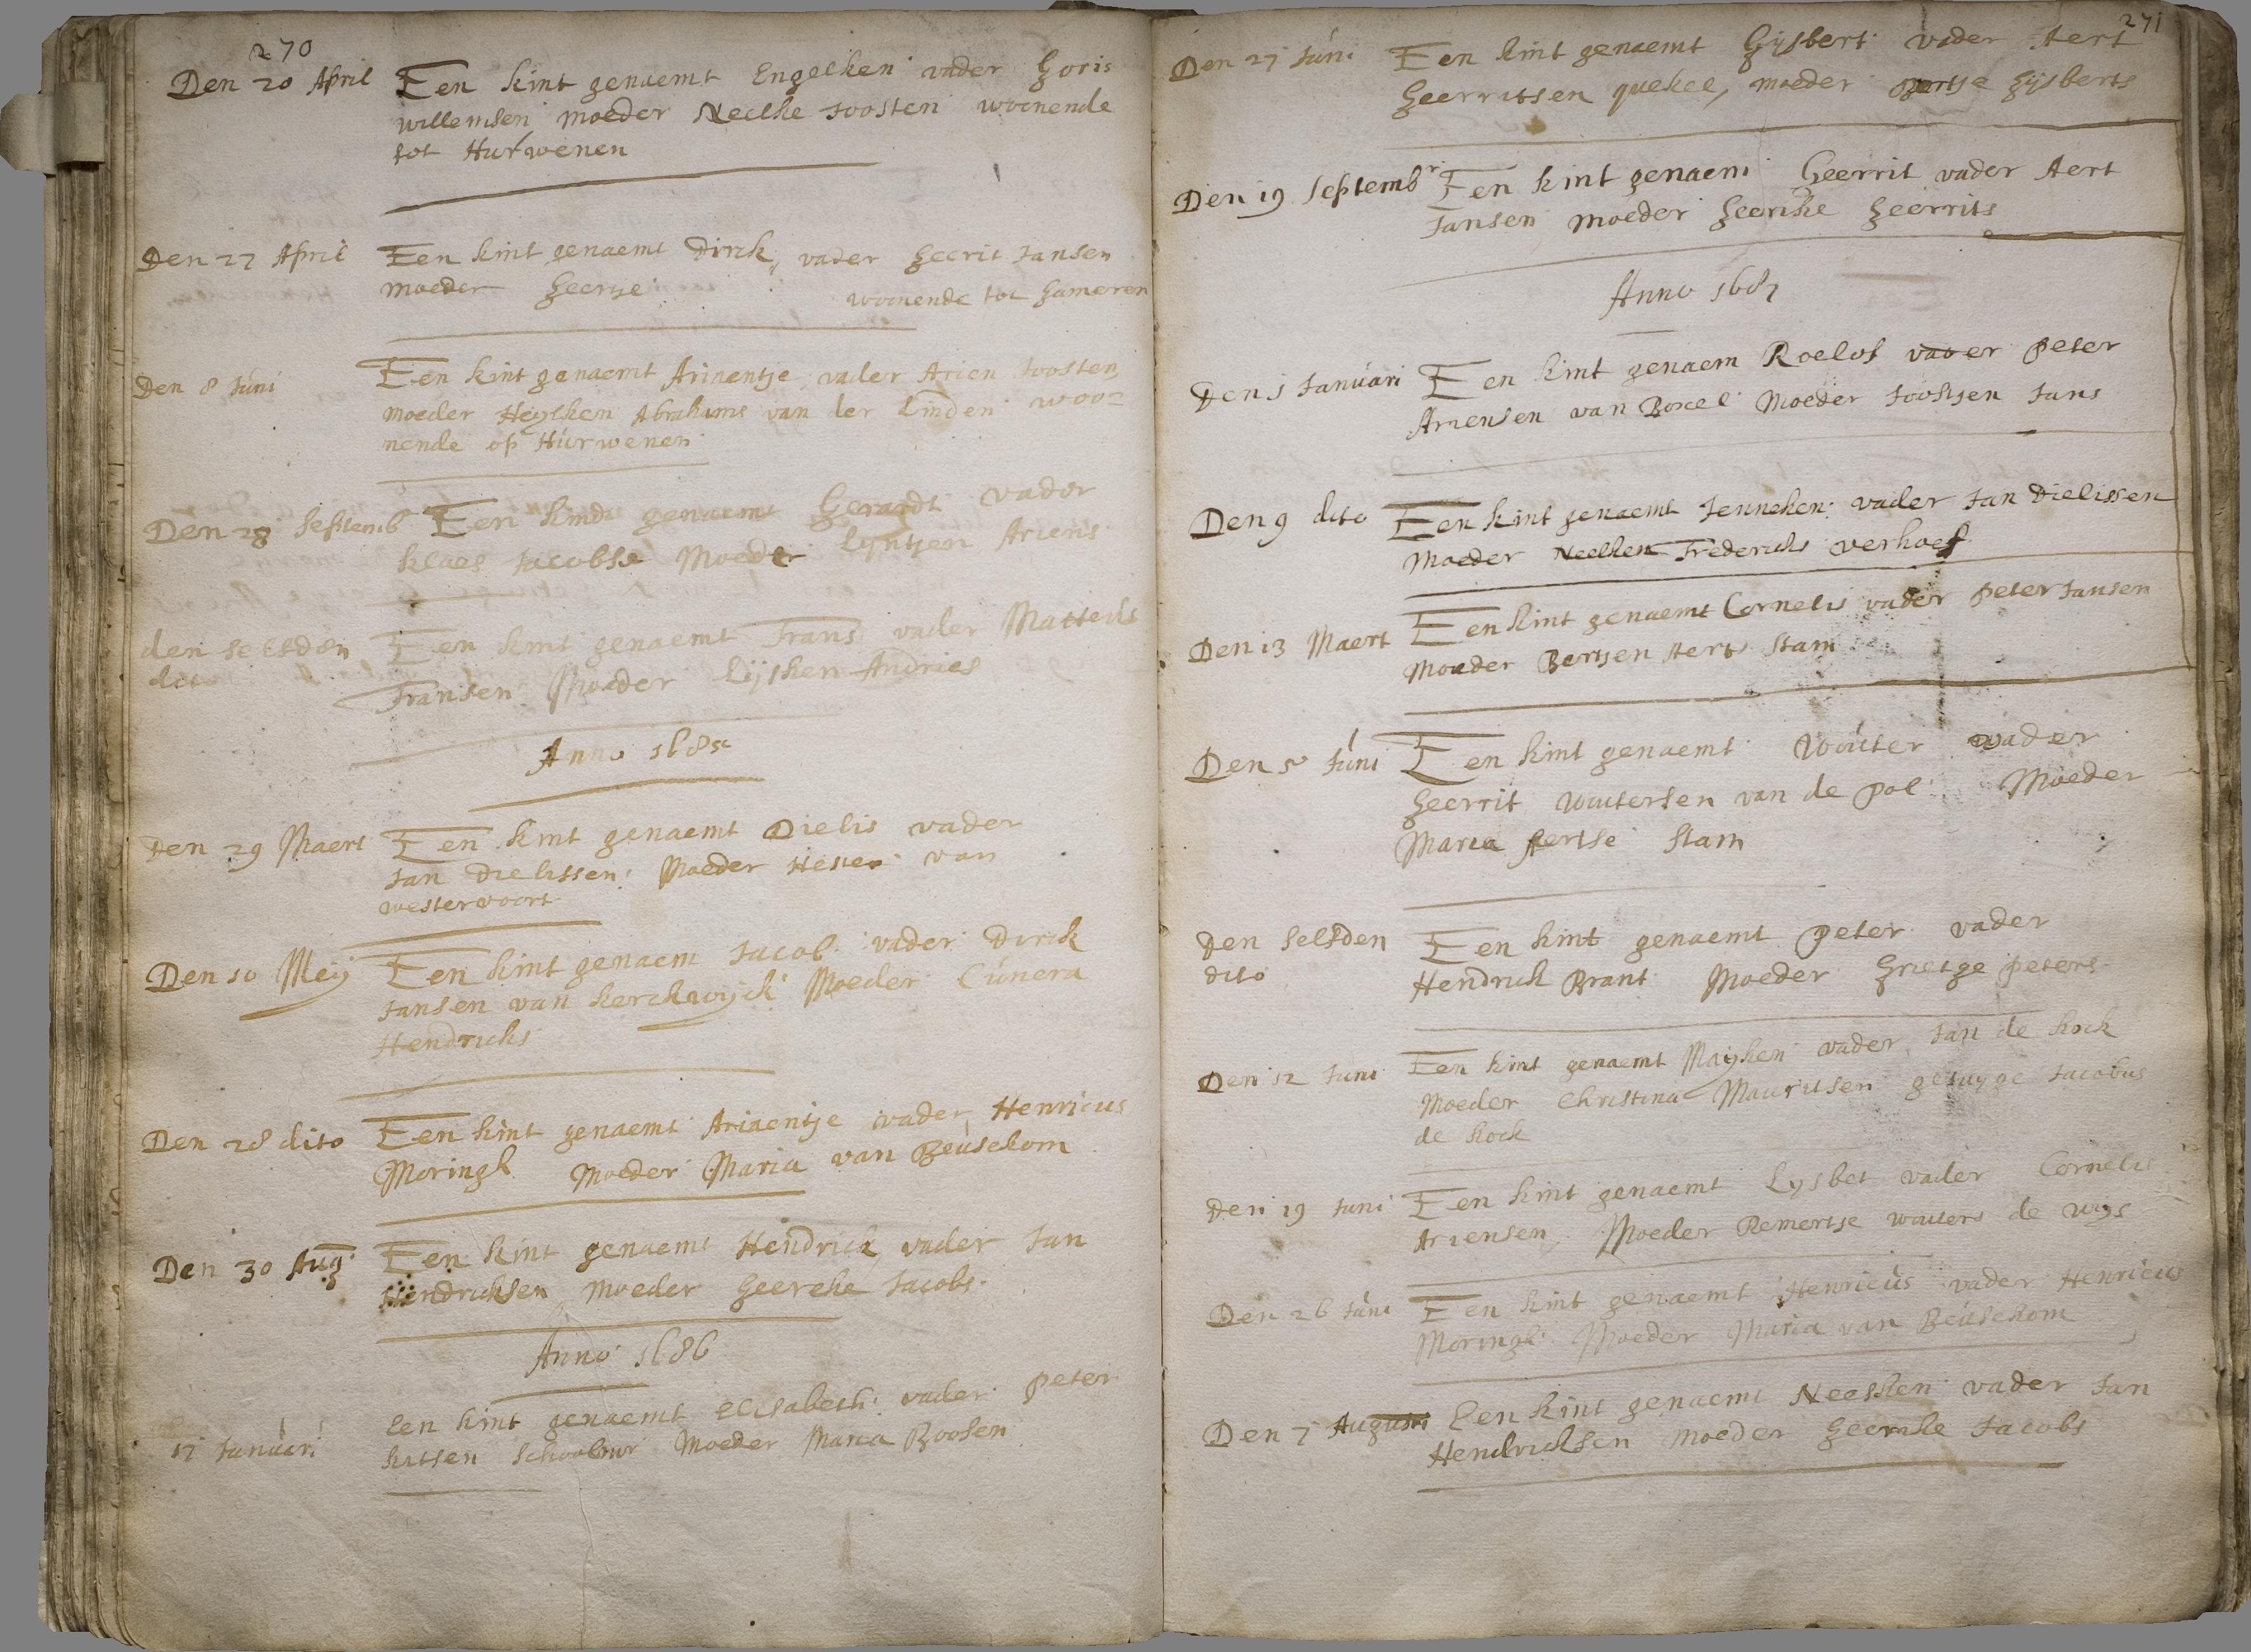 270
Den 20 April Een kint genaemt Engelken vader Goris
willemsen moeder Neelke Joosten woonende
tot Hurwenen
Den 27 April Een kint genaemt Dirck, vader Geerit Jansen
moeder Geertje woonende tot Gameren
Den 8 Juni Een kint genaemt Arinentje vader Arien Joosten
moeder Heylken Abrahams van der Linden woo=
nende op Hurwenen
Den 28 Septemb Een kindt genaemt Gerardt vader
Klaes Jacobse Moeder Lijntjen Ariens
den selfden Een kint genaemt Frans vader Matteus
dito
Fransen Moeder Lijsken Andries
Anno 1685
Den 29 Maert Een kint genaemt Dielis vader
Jan Dielissen: Moeder Hester van
westervoort
Den 10 Meij Een kint genaem Jacob vader Dirck
Jansen van Kerckwijck Moeder Cunera
Hendricks
Den 28 dito Een kint genaemt Ariaentje vader Henricus
Moringh Moeder Maria van Beusekom
Den 30 Aug Een kint genaemt Hendrick vader Jan
Hendricksen moeder Geereke Jacobs
Anno 1686
17 Januari Een kint genaemt Elisabeth vader Peter
moeder Maria Roosen
271
Den 27 Juni Een kint genaemt Gijsbert vader Aert
Geerritsen quekel, moeder Gijsberts
Den 19 Septembr Een kint genaem Geerrit vader Aert
Jansen moeder Geerike Geerrits
Anno 1687
Den 1 Januari Een kint genaem Roelof vader Peter
Ariensen van Boxel Moeder Joostjen Jans
Den 9 dito Een kint genaemt Jenneken: vader Jan Dielissen
Moeder Neelken Fredericks verhoef
Den 13 Maert Een kint genaemt Cornelis vader Peter Jansen
Moeder Bertjen Aerts Stam
Den 5 Juni Een kint genaemt Wouter vader
Geerrit Woutersen van de Pol Moeder
Maria Aertse Stam
Den selfden Een kint genaemt Peter vader
dito
Hendrick Brant Moeder Grietge Peters
Den 12 Juni Een kint genaemt Mayken vader Jan de Kock
Moeder Christina Mauritsen getuyge Jacobus
de Kock
Den 19 Juni Een kint genaemt Lysbet vader Cornelis
Ariensen Moeder Remertse wouters de wys
Den 26 Juni Een kint genaemt Henricus vader Henricus
Moringh Moeder Maria van Beusekom
Den 7 Augusti Een kint genaemt Neesken vader Jan
Hendricksen Moeder Geerike Jacobs